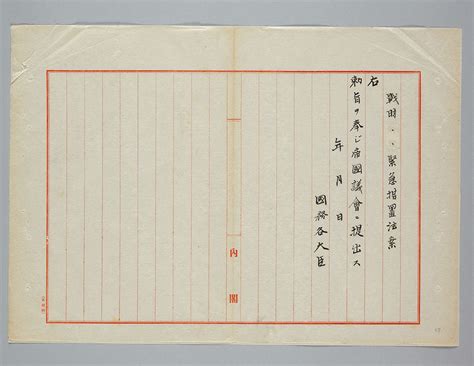 戰時・・緊急措置法案
右
勅旨ヲ奉シ帝國議會ニ提出ス
年 月 日
國務各大臣
内閣